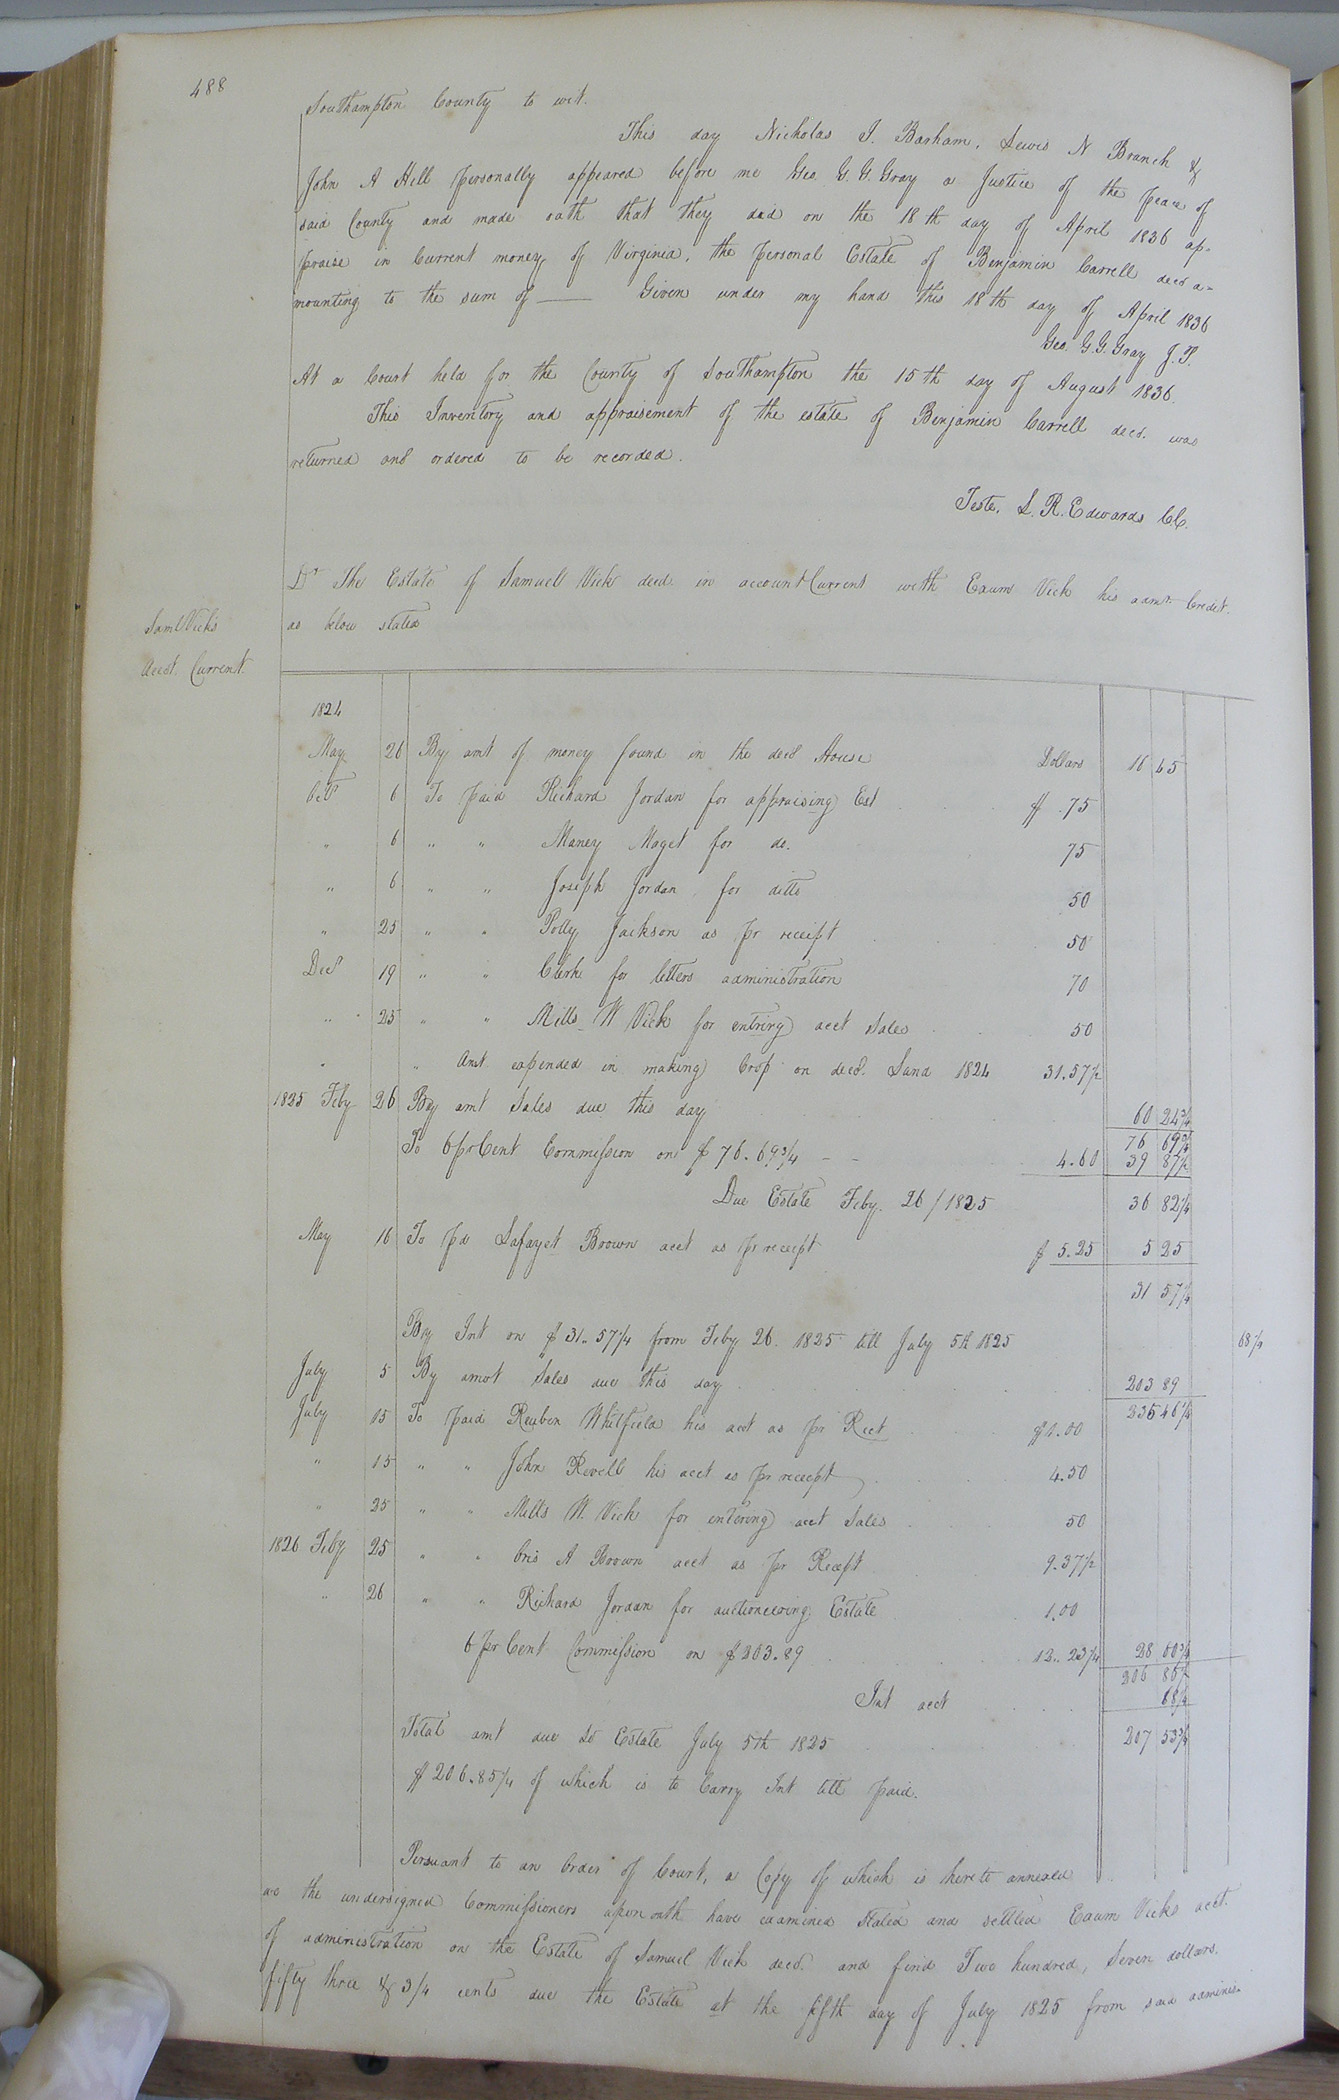 488
Southampton County to wit.
This day Nicholas J. Barham, Lewis N Branch &
John A Hill personally appeared before me Geo. G. G. Gray a Justice of the peace of
said County and made oath that they did on the 18th day of April 1836 ap-
praise in Current money of Virginia, the personal Estate of Benjamin Carrell decd a-
mounting to the sum of —— Given under my hand this 18th day of April 1836
Geo. G. G. Gray J. P.
At a Court held for the County of Southampton the 15th day of August 1836.
This Inventory and appraisement of the estate of Benjamin Carrell decd. was
returned and ordered to be recorded.
Teste, L. R. Edwards CC.
Dr The Estate of Samuel Vick decd in account Current with Exum Vick his admr. Credit.
as below stated
Saml Vick's
Acct. Current.
1824
May 26 By amt of money found in the decd House Dollars 16 45
Oct 6 To paid Richard Jordan for appraising Est $ .75
" 6 " " Maney Maget for do. 75
" 6 " " Joseph Jordan for ditto 50
" 25 " " Polly Jackson as pr receipt 50
Decr 19 " " Clerk for letters administration 70
" 25 " " Mills W Vick for entring acct Sales 50
" " Amt expended in making Crop on decd. Land 1824 31.57½
1825 Feby 26 By amt Sales due this day 60 24¾
76 69¾
To 6 pr Cent Commission on $76.69¾ - - 4.60 39 87½
Due Estate Feby. 26/1825 36 82¼
May 16 To pd Lafayet Brown acct as pr receipt $ 5.25 5 25
31 57¼
By Int on $31.57¼ from Feby 26. 1825 till July 5th 1825 68¼
July 5 By amot Sales due this day 203 89
235 46¼
July 15 To paid Reuben Whitfield his acct as pr Rect $1.00
" 15 " " John Revell his acct as pr receipt 4.50
" 25 " " Mills W. Vick for entering acct Sales 50
1826 Feby 25 " " Oris A Brown acct as pr Recept 9.37½
" 26 " " Richard Jordan for auctioneering Estate 1.00
6 pr Cent Commission on $203.89 12.23¼ 28 60¾
206 85½
Int acct 68¼
Total amt due sd Estate July 5th 1825 207 53¾
$206.85¼ of which is to Carry Int till paid.
Persuant to an Order of Court, a Copy of which is hereto annexed
we the undersigned Commissioners upon oath have examined stated and settled Exum Vicks acct.
of administration on the Estate of Samuel Vick decd. and find Two hundred, Seven dollars,
fifty three & 3/4 cents due the Estate at the fifth day of July 1825 from said adminis-